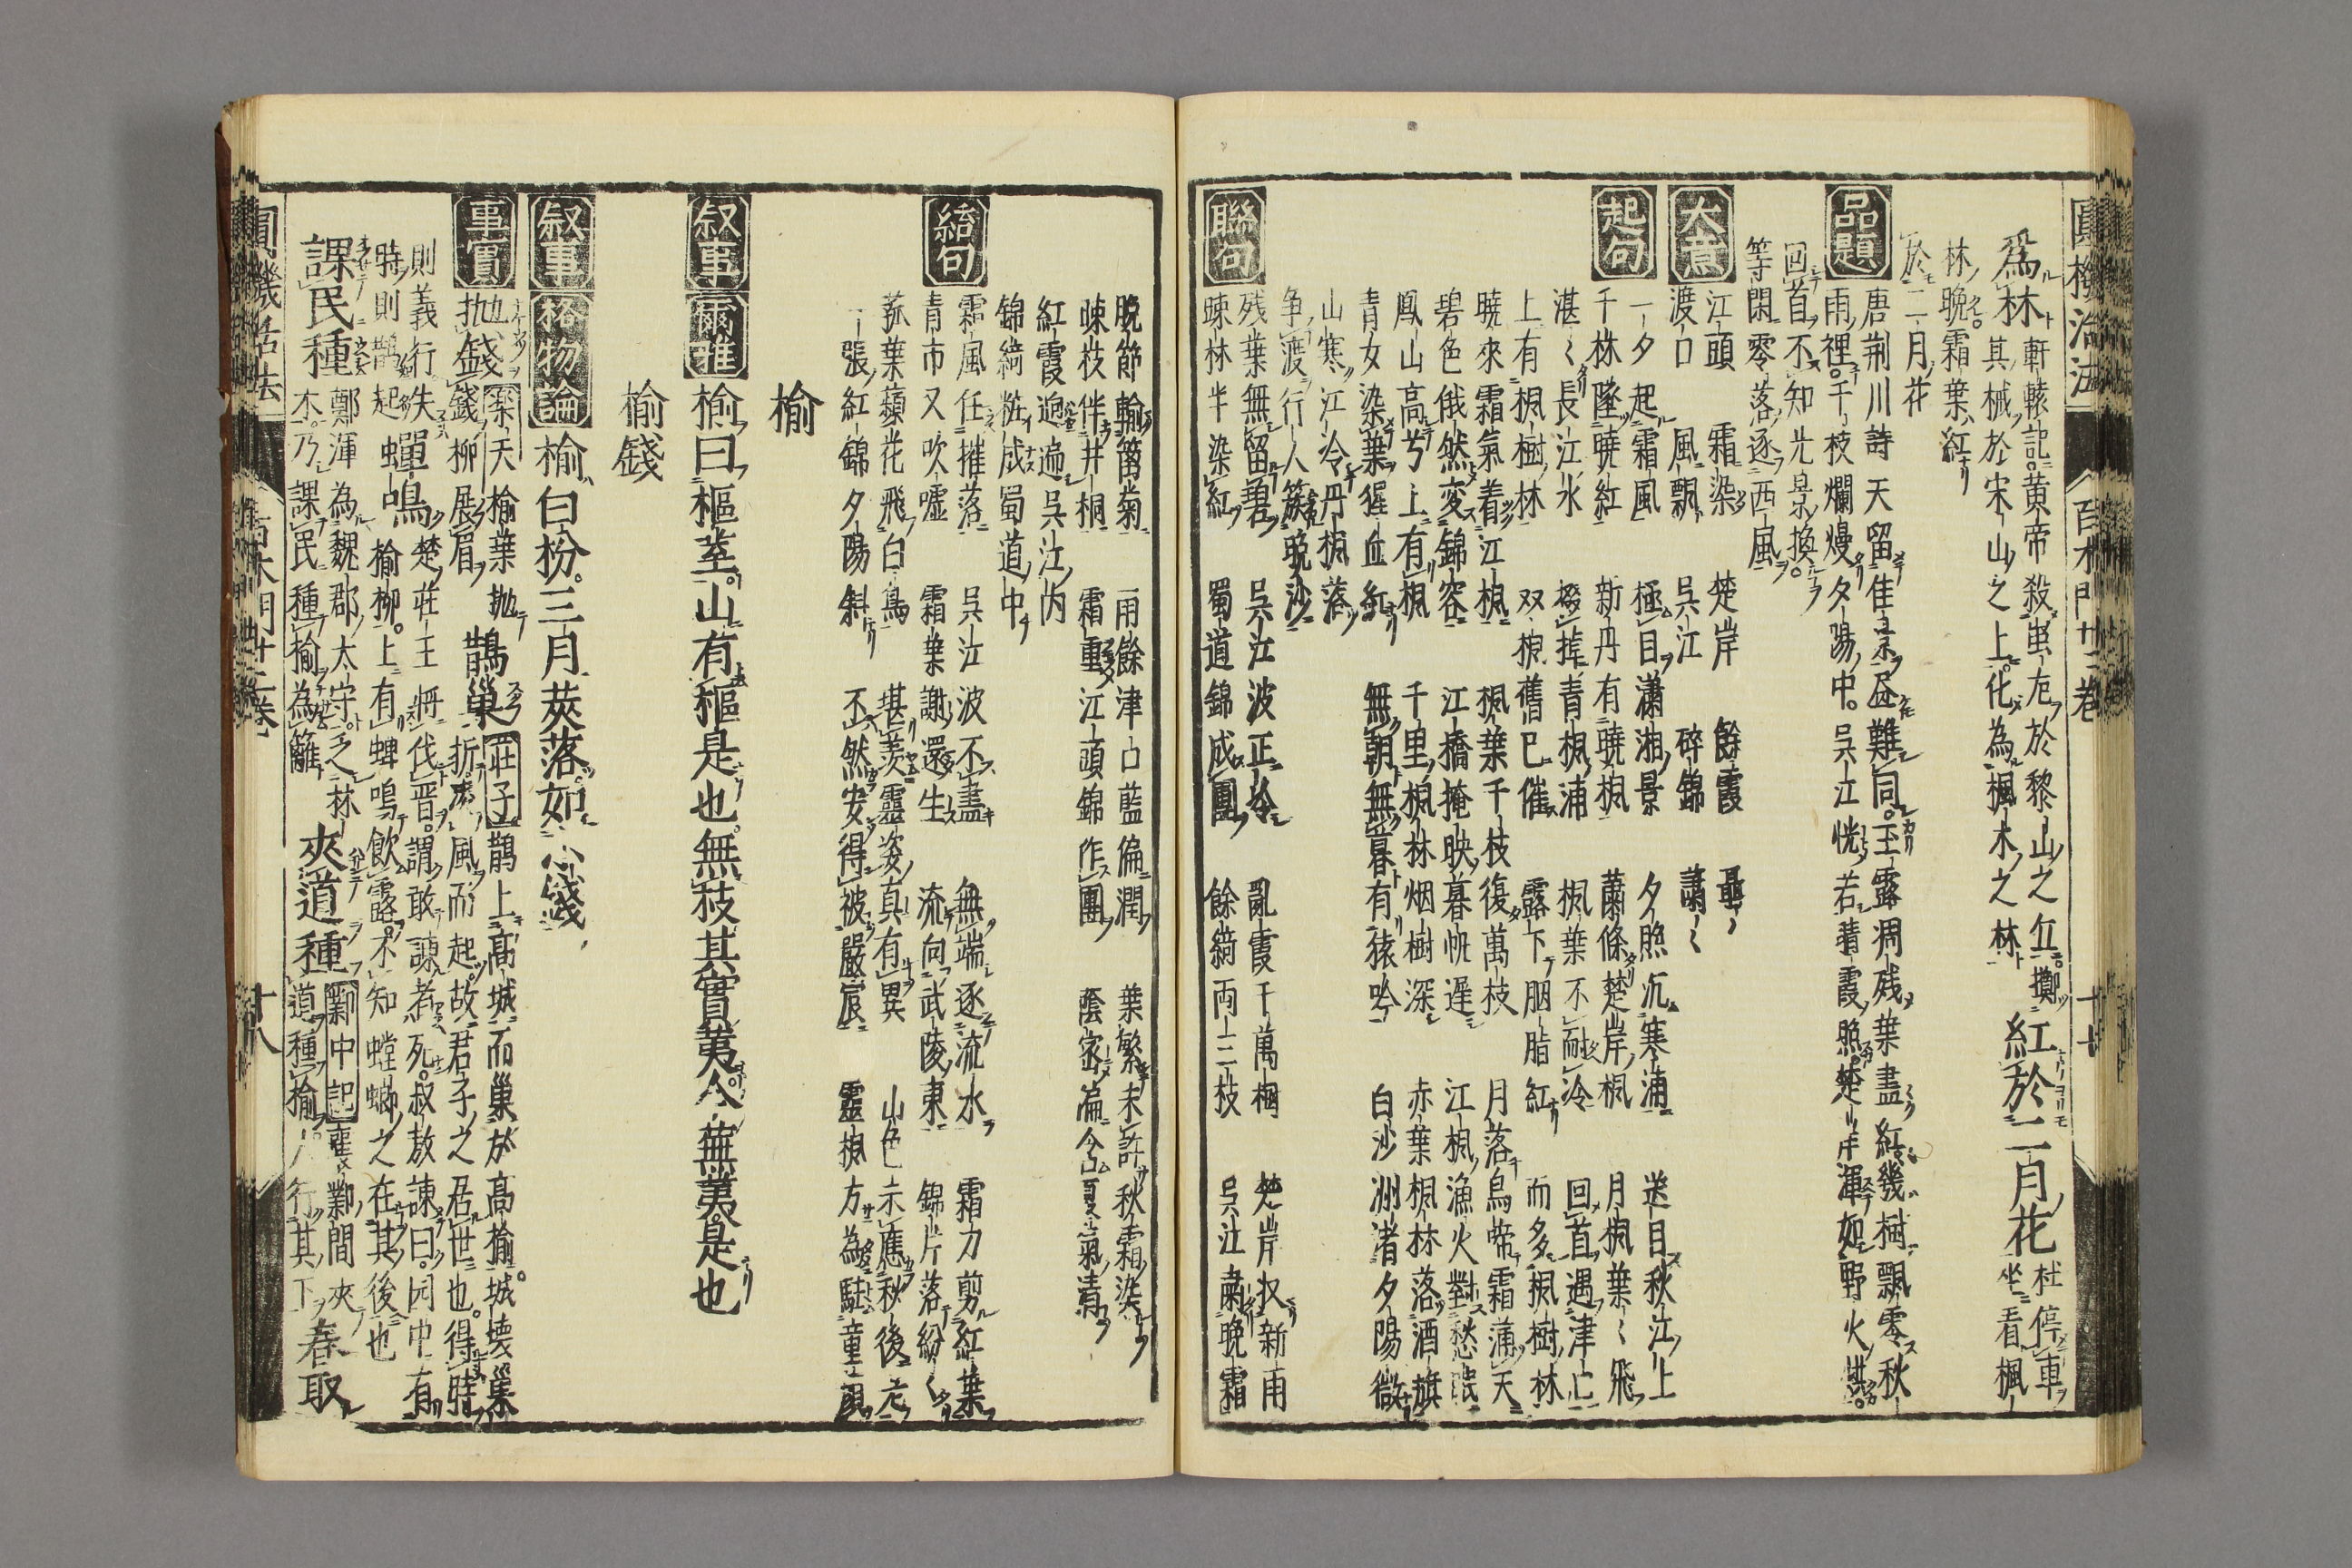 圓機活法
百木門廿二卷
十七
為林 軒轅記黄帝殺蚩尤於黎山之丘擲 紅於二月花 杜停車
其械於宋山之上化為楓木之林 坐看楓
林晩霜葉紅
於二月花
品題 唐荆川詩 天留佳景昼難同玉露凋残葉盡紅幾樹飄零秋
雨裡千枝爛熳夕陽中呉江恍若積霞照楚岸渾如野火烘
回首不知光景換
等閑零落逐西風
大意 江頭 霜染 楚岸 餘霞
渡口 風飄 呉江 碎錦 蕭〻
起句 一夕起霜風 極目瀟湘景 夕照沉寒浦 送目秋江上
千林墜曉紅 新丹有曉楓 蕭條楚岸楓 月楓葉〻飛
湛〻長江水 青楓浦 楓葉不耐冷 回首遇津亡
上有楓樹林 双楓舊已催 露下胭脂紅 而多楓樹林
曉來霜氣着江楓 楓葉千枝復萬枝 月落烏啼霜滿天
碧色俄然変錦容 江橋掩映暮帆遲 江楓漁火對愁眠
鳳山高兮上有楓 千里楓林烟樹深 赤葉楓林落酒旗
青女染葉猩血紅 無朝無暮有猿吟 白沙洲渚夕陽微
山寒江冷丹楓落
争渡行人簇晩沙
聯句 残葉無留碧 呉江波正冷 亂霞千萬樹 楚岸収新雨
疎林半染紅 蜀道錦成團 餘綺両三枝 呉江肅晩霜
晩節輸籬菊 雨餘津口藍偏潤 葉繁未許秋霜染
疎枝伴井桐 霜重江頭錦作團 陰密偏含夏氣清
紅霞迥遍呉江内
錦綺粧成蜀道中
結句 霜風任摧落 呉江波不盡 無端逐流水 霜力剪紅葉
青市又吹噓 霜葉謝還生 流向武陵東 錦片落紛〻
菰葉蘋花飛白鳥 堪羨靈姿真有異 山色未應秋後老
一張紅錦夕陽斜 不然安得被嚴宸 靈楓方為駐童顔
榆
叙事 爾雅 榆曰樞荎山有樞是也無枝其實荑今蕪荑是也
榆錢
叙事 格物論 榆白枌三月莢落如小錢
事實 抛錢 楽天 榆葉抛 鵲巢 莊子 鵲上高城而巢於高榆城壊巢
錢柳展眉 折凌風而起故君子之居世也得時
則義行失 蟬鳴 楚莊王將伐晋謂敢諫者死叔敖諫曰园中有
時則鵲起 榆柳上有蟬鳴飲露不知螳螂之在其後也
課民種 鄭渾為魏郡太守乏林 夾道種 鄴中記 襄鄴間夾 春取
木乃課民種榆為籬 道種榆人行其下
圓機活法
百木門廿二卷
十八